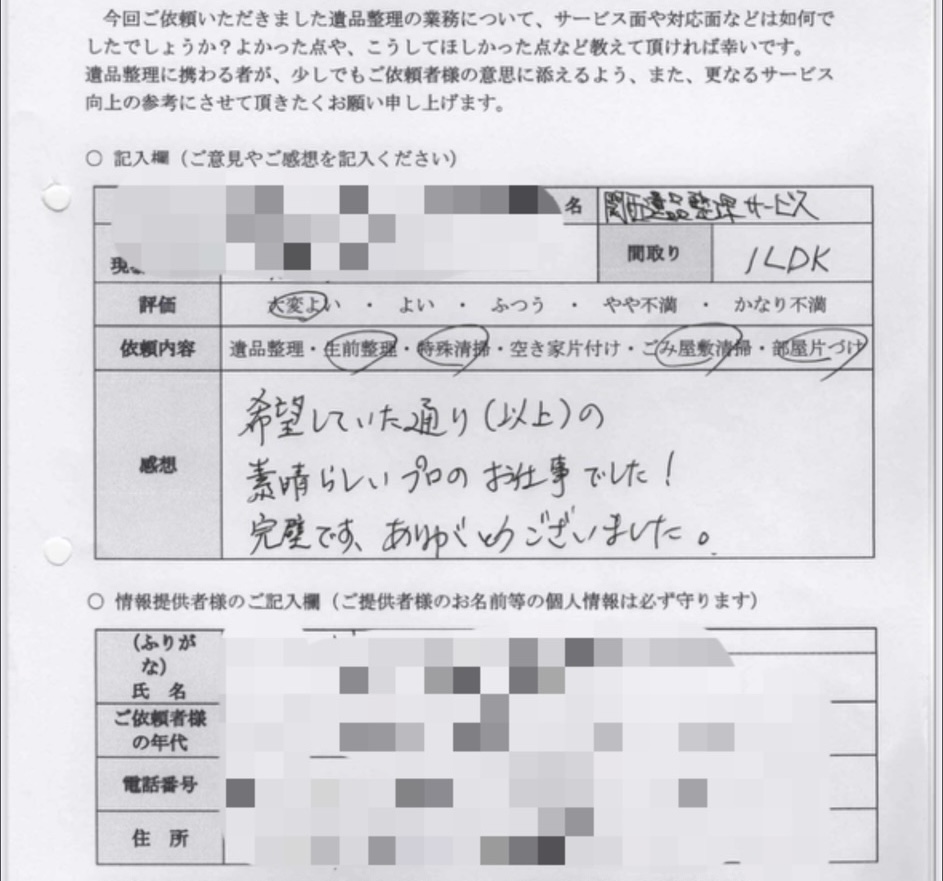 今回ご依頼いただきました遺品整理の業務について、サービス面や対応面などは如何で
したでしょうか？よかった点や、こうしてほしかった点など教えて頂ければ幸いです。
遺品整理に携わる者が、少しでもご依頼者様の意思に添えるよう、また、更なるサービス
向上の参考にさせて頂きたくお願い申し上げます。
○ 記入欄（ご意見やご感想を記入ください）
名 関西遺品整理サービス
現 間取り 1LDK
評価 大変よい ・ よい ・ ふつう ・ やや不満 ・ かなり不満
依頼内容 遺品整理・生前整理・特殊清掃・空き家片付け・ごみ屋敷清掃・部屋片づけ
希望していた通り（以上）の
感想 素晴らしいプロのお仕事でした！
完璧です、ありがとうございました。
○ 情報提供者様のご記入欄（ご提供者様のお名前等の個人情報は必ず守ります）
（ふりが
な）
氏 名
ご依頼者様
の年代
電話番号
住 所